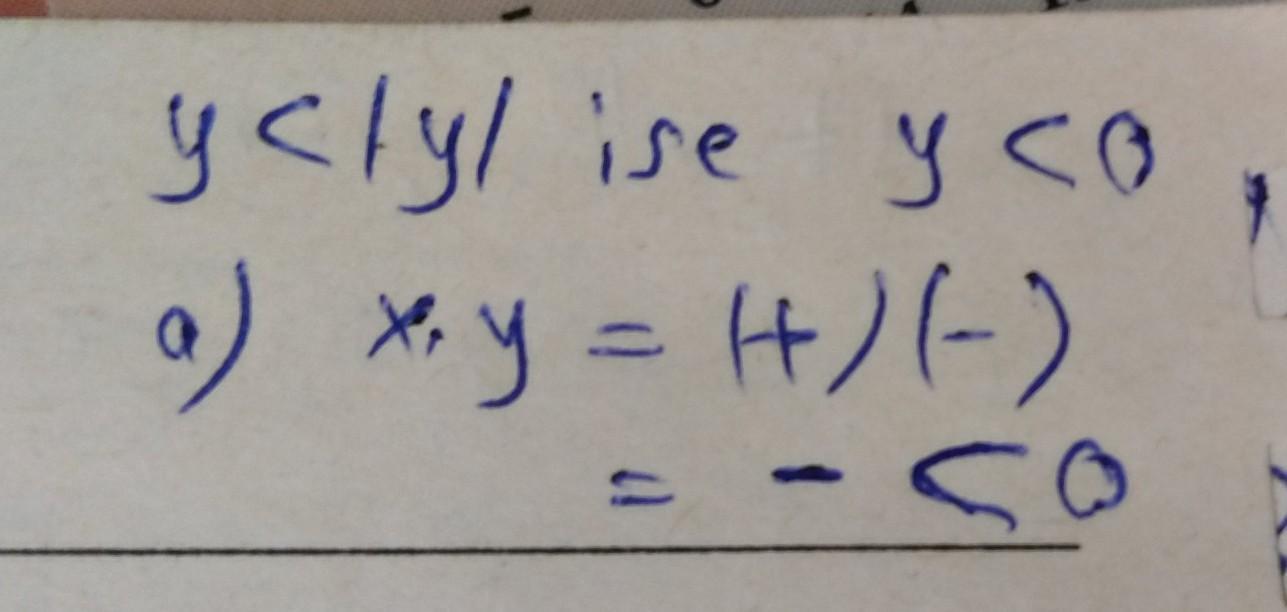 y < |y| ise y < 0
a) x.y = (+)(-)
= - < 0